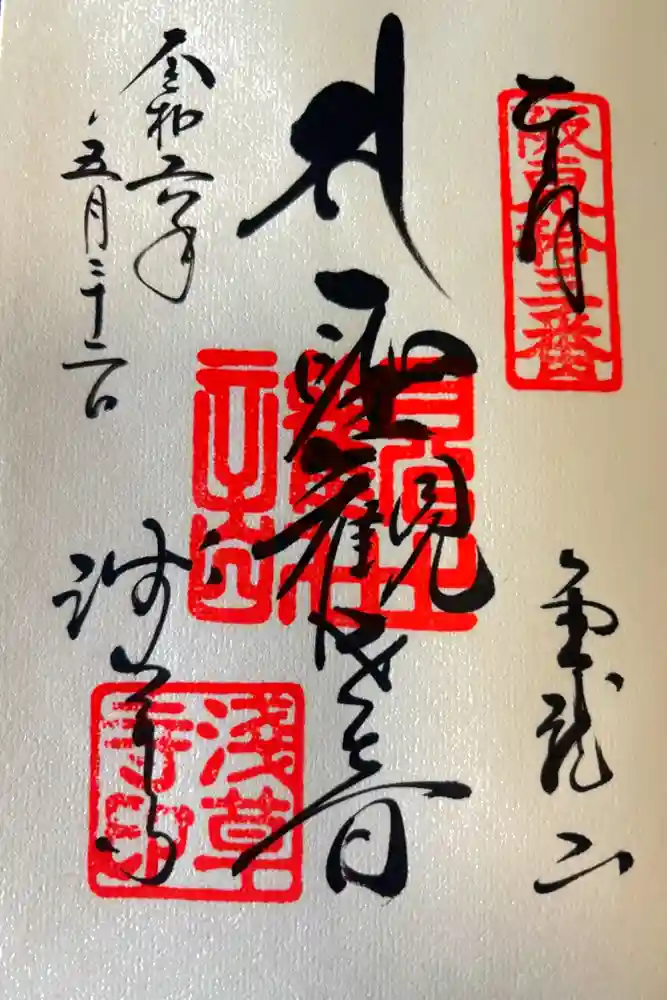 奉拝
阪東拾三番
金龍山
聖観世音
令和六年
五月二十二日
浅草寺
淺草寺印